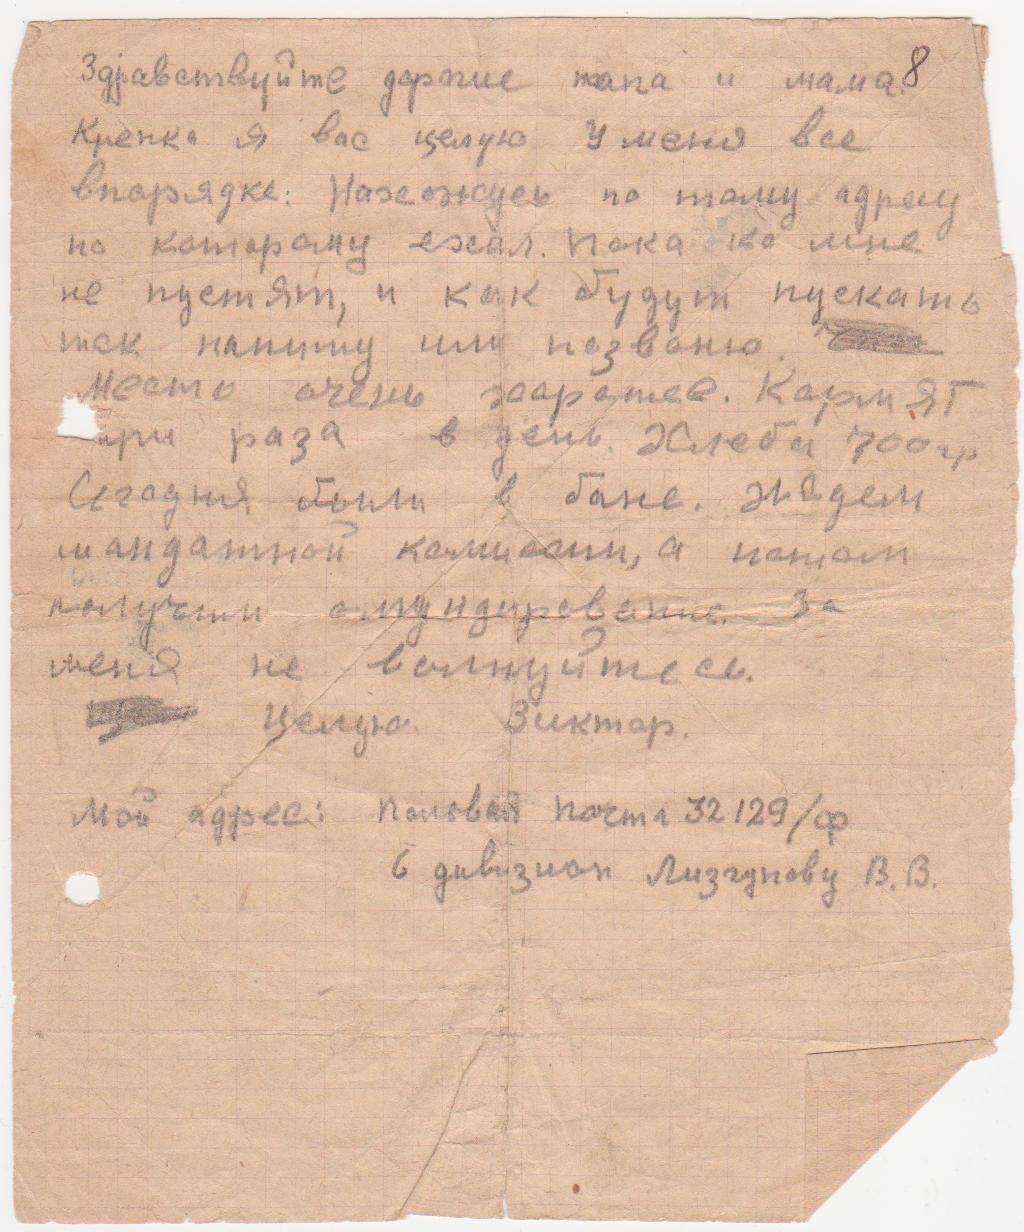 Здравствуйте дорогие папа и мама. 8
Крепко я вас целую У меня все
впорядке: Нахожусь по тому адресу
по которому ехал. Пока ко мне
не пустят, и как будут пускать
так напишу или позвоню.
Место очень хорошее. Кормят
три раза в день. Хлеба 700 гр
Сегодня были в бане. Ждем
мандатной комиссии, а потом
получим омундирование. За
меня не волнуйтесь.
Целую. Виктор.
Мой адрес: Полевая почта 32129/ф
6 дивизион Лизгунову В. В.